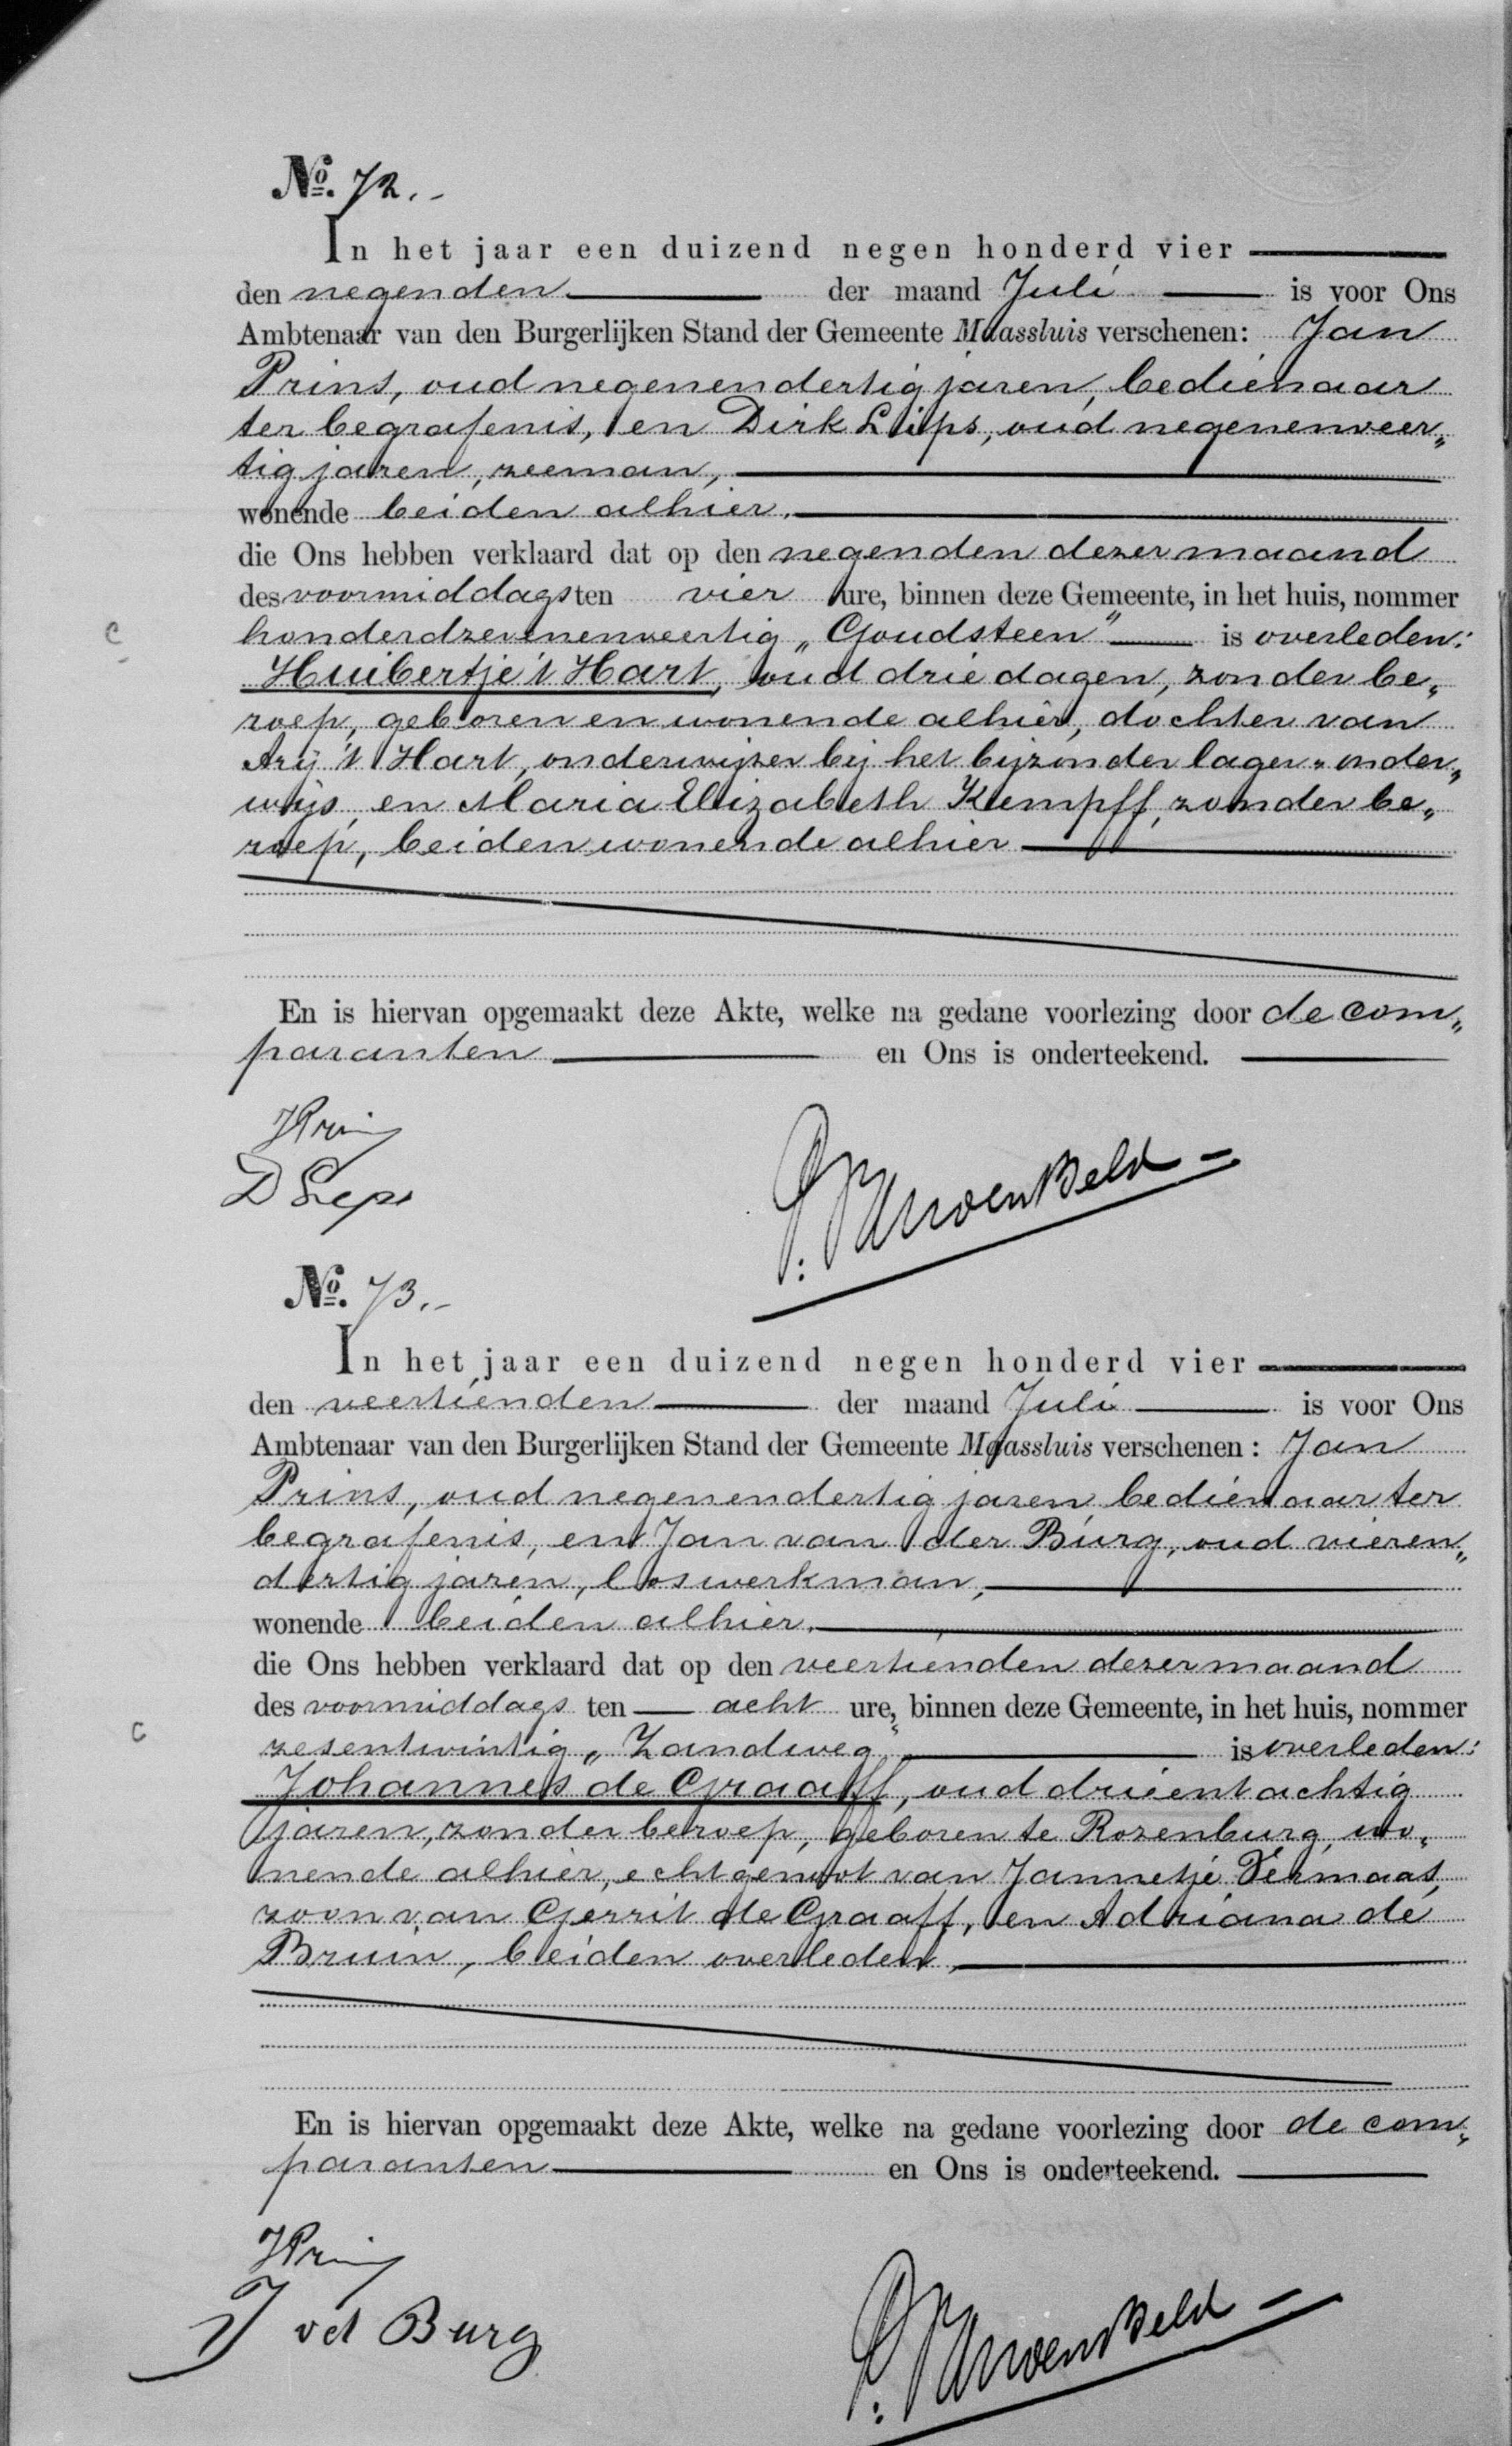 No. 72.-
In het jaar een duizend negen honderd vier
den negenden der maand Juli is voor Ons
Ambtenaar van den Burgerlijken Stand der Gemeente Maassluis verschenen: Jan
Prins, oud negenendertig jaren, bedienaar
ter begrafenis, en Dirk Lips, oud negenenveer„
tig jaren, zeeman,
wonende beiden alhier.
die Ons hebben verklaard dat op den negenden dezer maand
des voormiddags ten vier ure, binnen deze Gemeente, in het huis, nommer
c honderdzevenenveertig „Goudsteen" is overleden:
Huibertje 't Hart, oud drie dagen, zonder be„
roep, geboren en wonende alhier, dochter van
Arij 't Hart, onderwijzer bij het bijzonder lager onder„
wijs, en Maria Elizabeth Kempff, zonder be„
roep, beiden wonende alhier
En is hiervan opgemaakt deze Akte, welke na gedane voorlezing door de com„
paranten en Ons is onderteekend.
JPrins
D Lips
No. 73.-
In het jaar een duizend negen honderd vier
den veertienden der maand Juli is voor Ons
Ambtenaar van den Burgerlijken Stand der Gemeente Maassluis verschenen: Jan
Prins, oud negenendertig jaren, bedienaar ter
begrafenis, en Jan van der Burg, oud vieren„
dertig jaren, loswerkman,
wonende beiden alhier.
die Ons hebben verklaard dat op den veertienden dezer maand
des voormiddags ten acht ure, binnen deze Gemeente, in het huis, nommer
c zesentwintig „Zandweg" is overleden:
Johannes de Graaff, oud drieentachtig
jaren, zonder beroep, geboren te Rozenburg, wo„
nende alhier, echtgenoot van Jannetje Vermaas,
zoon van Gerrit de Graaff, en Adriana de
Bruin, beiden overleden,
En is hiervan opgemaakt deze Akte, welke na gedane voorlezing door de com„
paranten en Ons is onderteekend.
JPrins
J vd Burg